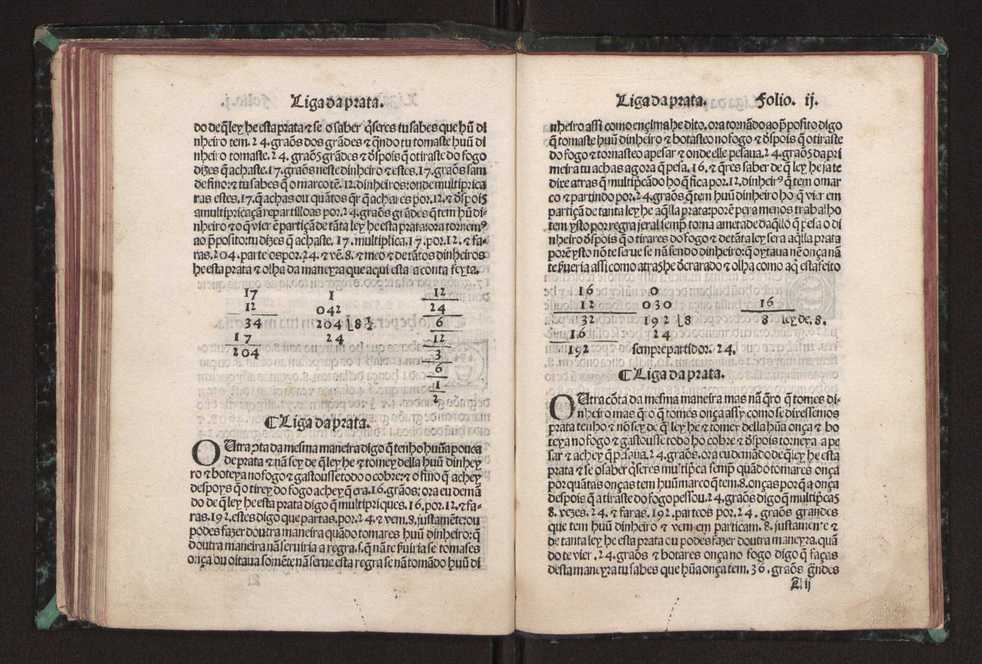 Liga da prata.
do de q̃ ley he esta prata ⁊ se o saber q̃seres tu sabes que hũ di
nheiro tem.24.graãos dos grãdes ⁊ qñdo tu tomaste huũ di
nheiro tomaste.24.graõs grãdes ⁊ d̃spois q̃ otiraste do fogo
dizes q̃ achaste.17.graãos neste dinheiro ⁊ estes.17.graãos sam
de fino:⁊ tu sabes q̃ o marco tẽ.12.dinheiros:onde multiprica
ras estes.17.q̃ achas ou quãtos q̃r q̃ achares por.12.⁊ d̃spois
a multipricaçã repartilloas por.24.graãos grãdes q̃ tem hũ di-
nheiro ⁊ o q̃ vier ẽ partiçã de tãta ley he esta prata:ora tornem⁹
ao pp̃osito:tu dizes q̃ achaste.17.multiplica.17.por.12.⁊ fa-
ras.204.parte os por.24.⁊ vẽ.8.⁊ meo ⁊ de tãtos dinheiros
he esta prata ⁊ olha da maneyra que aqui esta a conta feyta.
17 1 12
12 042 24
34 204 ⌊8 ½ 6
17 24 12
204 3
6
1
2
¶ Liga da prata.
OUtra cõta da mesma maneira digo q̃ tenho huũa pouca
de prata ⁊ nã sey de q̃ ley he ⁊ tomey della huũ dinhey
ro ⁊ boteya no fogo ⁊ gastousse todo o cobre:⁊ o fino q̃ achey
despoys q̃ o tirey do fogo achey q̃ era.16.graãos; ora eu demã
do de q̃ ley he esta prata digo q̃ multipriques.16.por.12.⁊ fa-
ras.192.estes digo que partas.por.24.⁊ vem.8.justamẽte:ou
podes fazer doutra maneira quãdo tomares huũ dinheiro:q̃
doutra maneira nã seruiria a regra.s.q̃ nã te s̃uiria se tomases
onça ou oitaua somẽte nã serue esta regra se nã tomãdo huũ di
Liga da prata. Folio. ij.
nheiro assi como encima he dito.ora tornãdo ao pp̃osito digo
q̃ tomaste huũ dinheiro ⁊ botasteo no fogo ⁊ d̃spois q̃ o tiraste
do fogo ⁊ tornasteo a pesar ⁊ onde elle pesaua.24.graãos da pri
meira tu achas agora q̃ pesa.16.⁊ q̃res saber de q̃ ley he ja te
dixe atras q̃ multipeãdo ho q̃ fica por.12.dinheir⁹ q̃ tem o mar
co ⁊ partindo por.24.graãos q̃ tem huũ dinheiro ho q̃ vier em
partiçã de tanta ley he aq̃lla prata:porẽ pera menos trabalho
tem ysto por regra jeral semp̃ torna ametade daq̃llo q̃ pesa o di
nheiro d̃spois q̃ o tirares do fogo ⁊ de tãta ley sera aq̃lla prata
porẽ ysto nõ te serue se nã sendo dinheiro:q̃ oytaua nẽ onça nã
te s̃uiria assi como atras he d̃crarado ⁊ olha como aq̃ esta feito
16 0
12 030 16
32 192 ⌊8 8 ley de.8.
16 24
192 sempre partidor.24.
¶ Liga da prata.
OUtra cõta da mesma maneira mas nã q̃ro q̃ tomes di-
nheiro mas q̃ro q̃ tomes onça assy como se dixessemos
prata tenho ⁊ nõ sey de q̃ ley he ⁊ tomey della hũa onça ⁊ bo
teya no fogo ⁊ gastousse todo ho cobre ⁊ d̃spois torneya a pe
sar ⁊ achey q̃ pesaua.24.graãos.ora eu demãdo de q̃ ley he esta
prata ⁊ se o saber q̃seres multip̃ca semp̃ quãdo tomares onça
por quãtas onças tem huũ marco q̃ tem.8.onças por q̃ a onça
despois q̃ a tiraste do fogo pessou.24.graãos digo q̃ multip̃cas
8.vezes.24.⁊ faras.192.parteos por.24.graãos grandes
que tem huũ dinheiro ⁊ vem em particam.8.justamente ⁊
de tanta ley he esta prata ou podes fazer doutra maneyra.quã
do te vier.24.graãos ⁊ botares onça no fogo digo q̃ faças
desta maneyra tu sabes que hũa onça tem.36.graõs g̃ndes
A ij